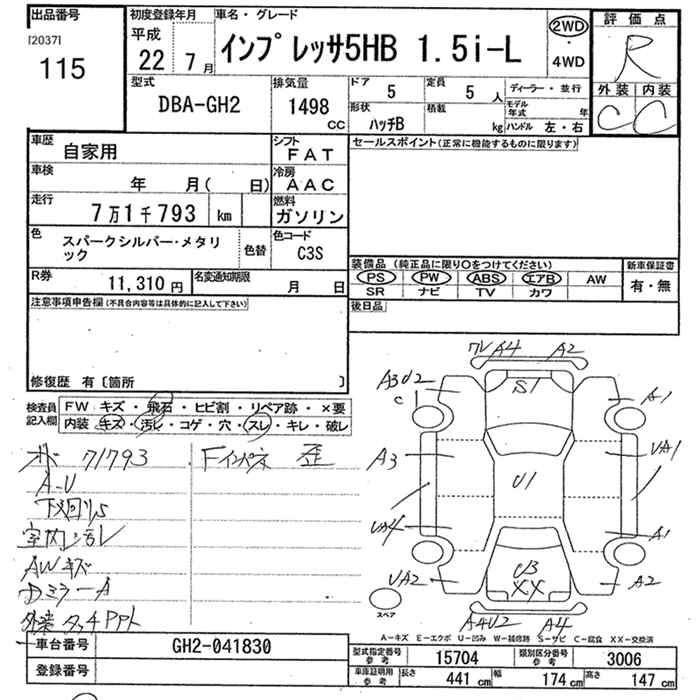 出品番号
[2037]
115
初度登録年月
平成
22 年 7 月
車名・グレード
インプレッサ5HB 1.5i-L
2WD
・
4WD
評価点
R
外装 内装
C C
型式
DBA-GH2
排気量
1498
CC
ドア
5
定員
5 人
ディーラー・並行
形状
ハッチB
積載
kg
モデル年式 年
ハンドル 左・右
車歴
自家用
シフト
FAT
車検
年 月( 日)
冷房
AAC
走行
7万1千793 km
燃料
ガソリン
色
スパークシルバー・メタリ
ック
色替
色コード
C3S
R券
11,310 円
名変通知期限
月 日
セールスポイント(正常に機能するものに限ります)
装備品 (純正品に限り〇をつけてください)
PS PW ABS エアB AW
SR ナビ TV カワ
新車保証書
有・無
後日品
注意事項申告欄(不具合内容等は具体的に記入して下さい)
修復歴 有〔箇所 〕
検査員
記入欄
FW キズ・飛石・ヒビ割・リペア跡・×要
内装 キズ・汚レ・コゲ・穴・スレ・キレ・破レ
71793
Fインパネ 歪
A-U
下廻りS
室内汚レ
AWキズ
DミラーA
外装タッチPPト
ワレ A4 A2
A3U2
C
S1
A1
A3
U1
UA1
UA4
A1
UA2
UB
XX
A2
スペア
A4U2 A4
A-キズ E-エクボ U-凹み W-補修跡 S-サビ C-腐食 XX-交換済
車台番号
GH2-041830
登録番号
型式指定番号
参考
15704
類別区分番号
参考
3006
車庫証明用
参考
長さ
441 cm
幅
174 cm
高さ
147 cm